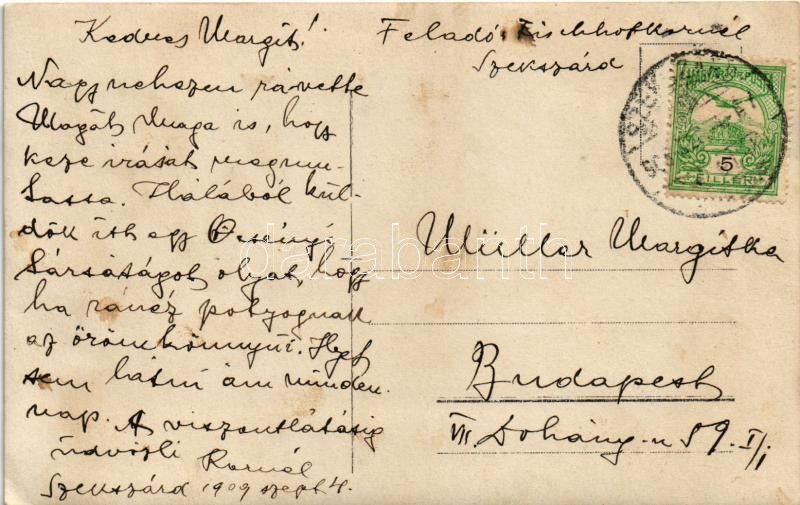 Kedves Margit!
Nagynehezen rávette
Magát maga is, hogy
keze irását megmu-
tassa. Hálából kül-
dök itt egy
társaságot olyat, hogy
ha ránéz potyognak
az örömkönnyűi. Ilyet
sem látni ám minden
nap. A viszontlátásig
üdvözli Kornél
Szekszárd 1909 szept 4.
Feladó: Fischhof Kornél
Szekszárd
5
FILLÉR
Müller Margitka
Budapest
VII Dohány-u 59. I/1
darabanth